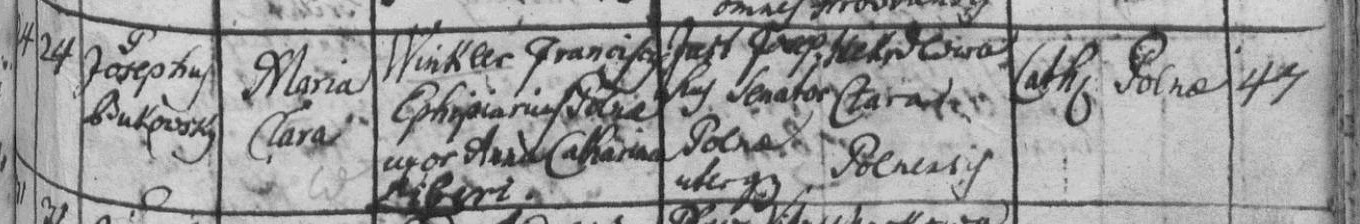 24
P
Josephus
Bukovsky
Maria
Clara
Winkler Francisc
Ephipiarius Polnæ
uxor Anna Catharina
Liberi.
Just Joseph
hus Senator
Polnæ
uterq3
Clara
Polnensis
Cath:
Polnæ
47